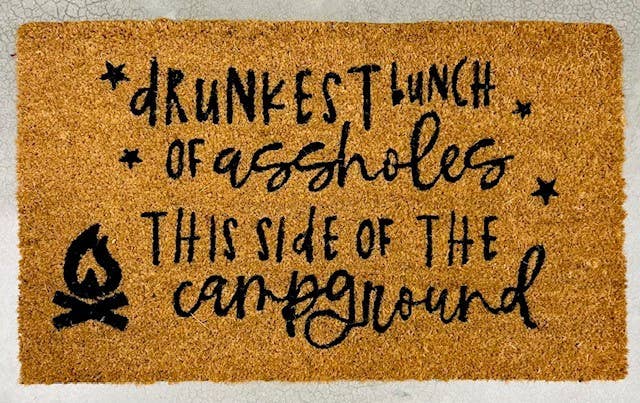 dRUNKEST bUNCH
OF assholes
THIS SIdE OF THE
campground